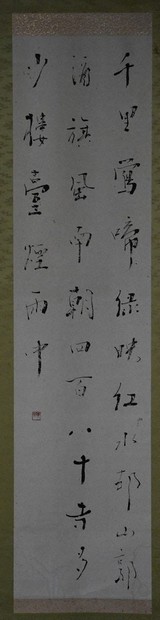 千里鶯啼緑映紅水邨山郭
酒旗風南朝四百八十寺多
少樓臺煙雨中